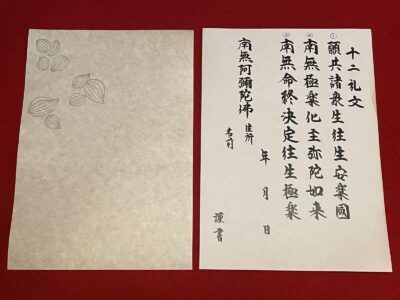 十二礼文
願共諸衆生往生安樂國
南無極樂化主弥陀如来
南無命終決定往生極樂
年 月 日
南無阿彌陀佛
住所
謹書